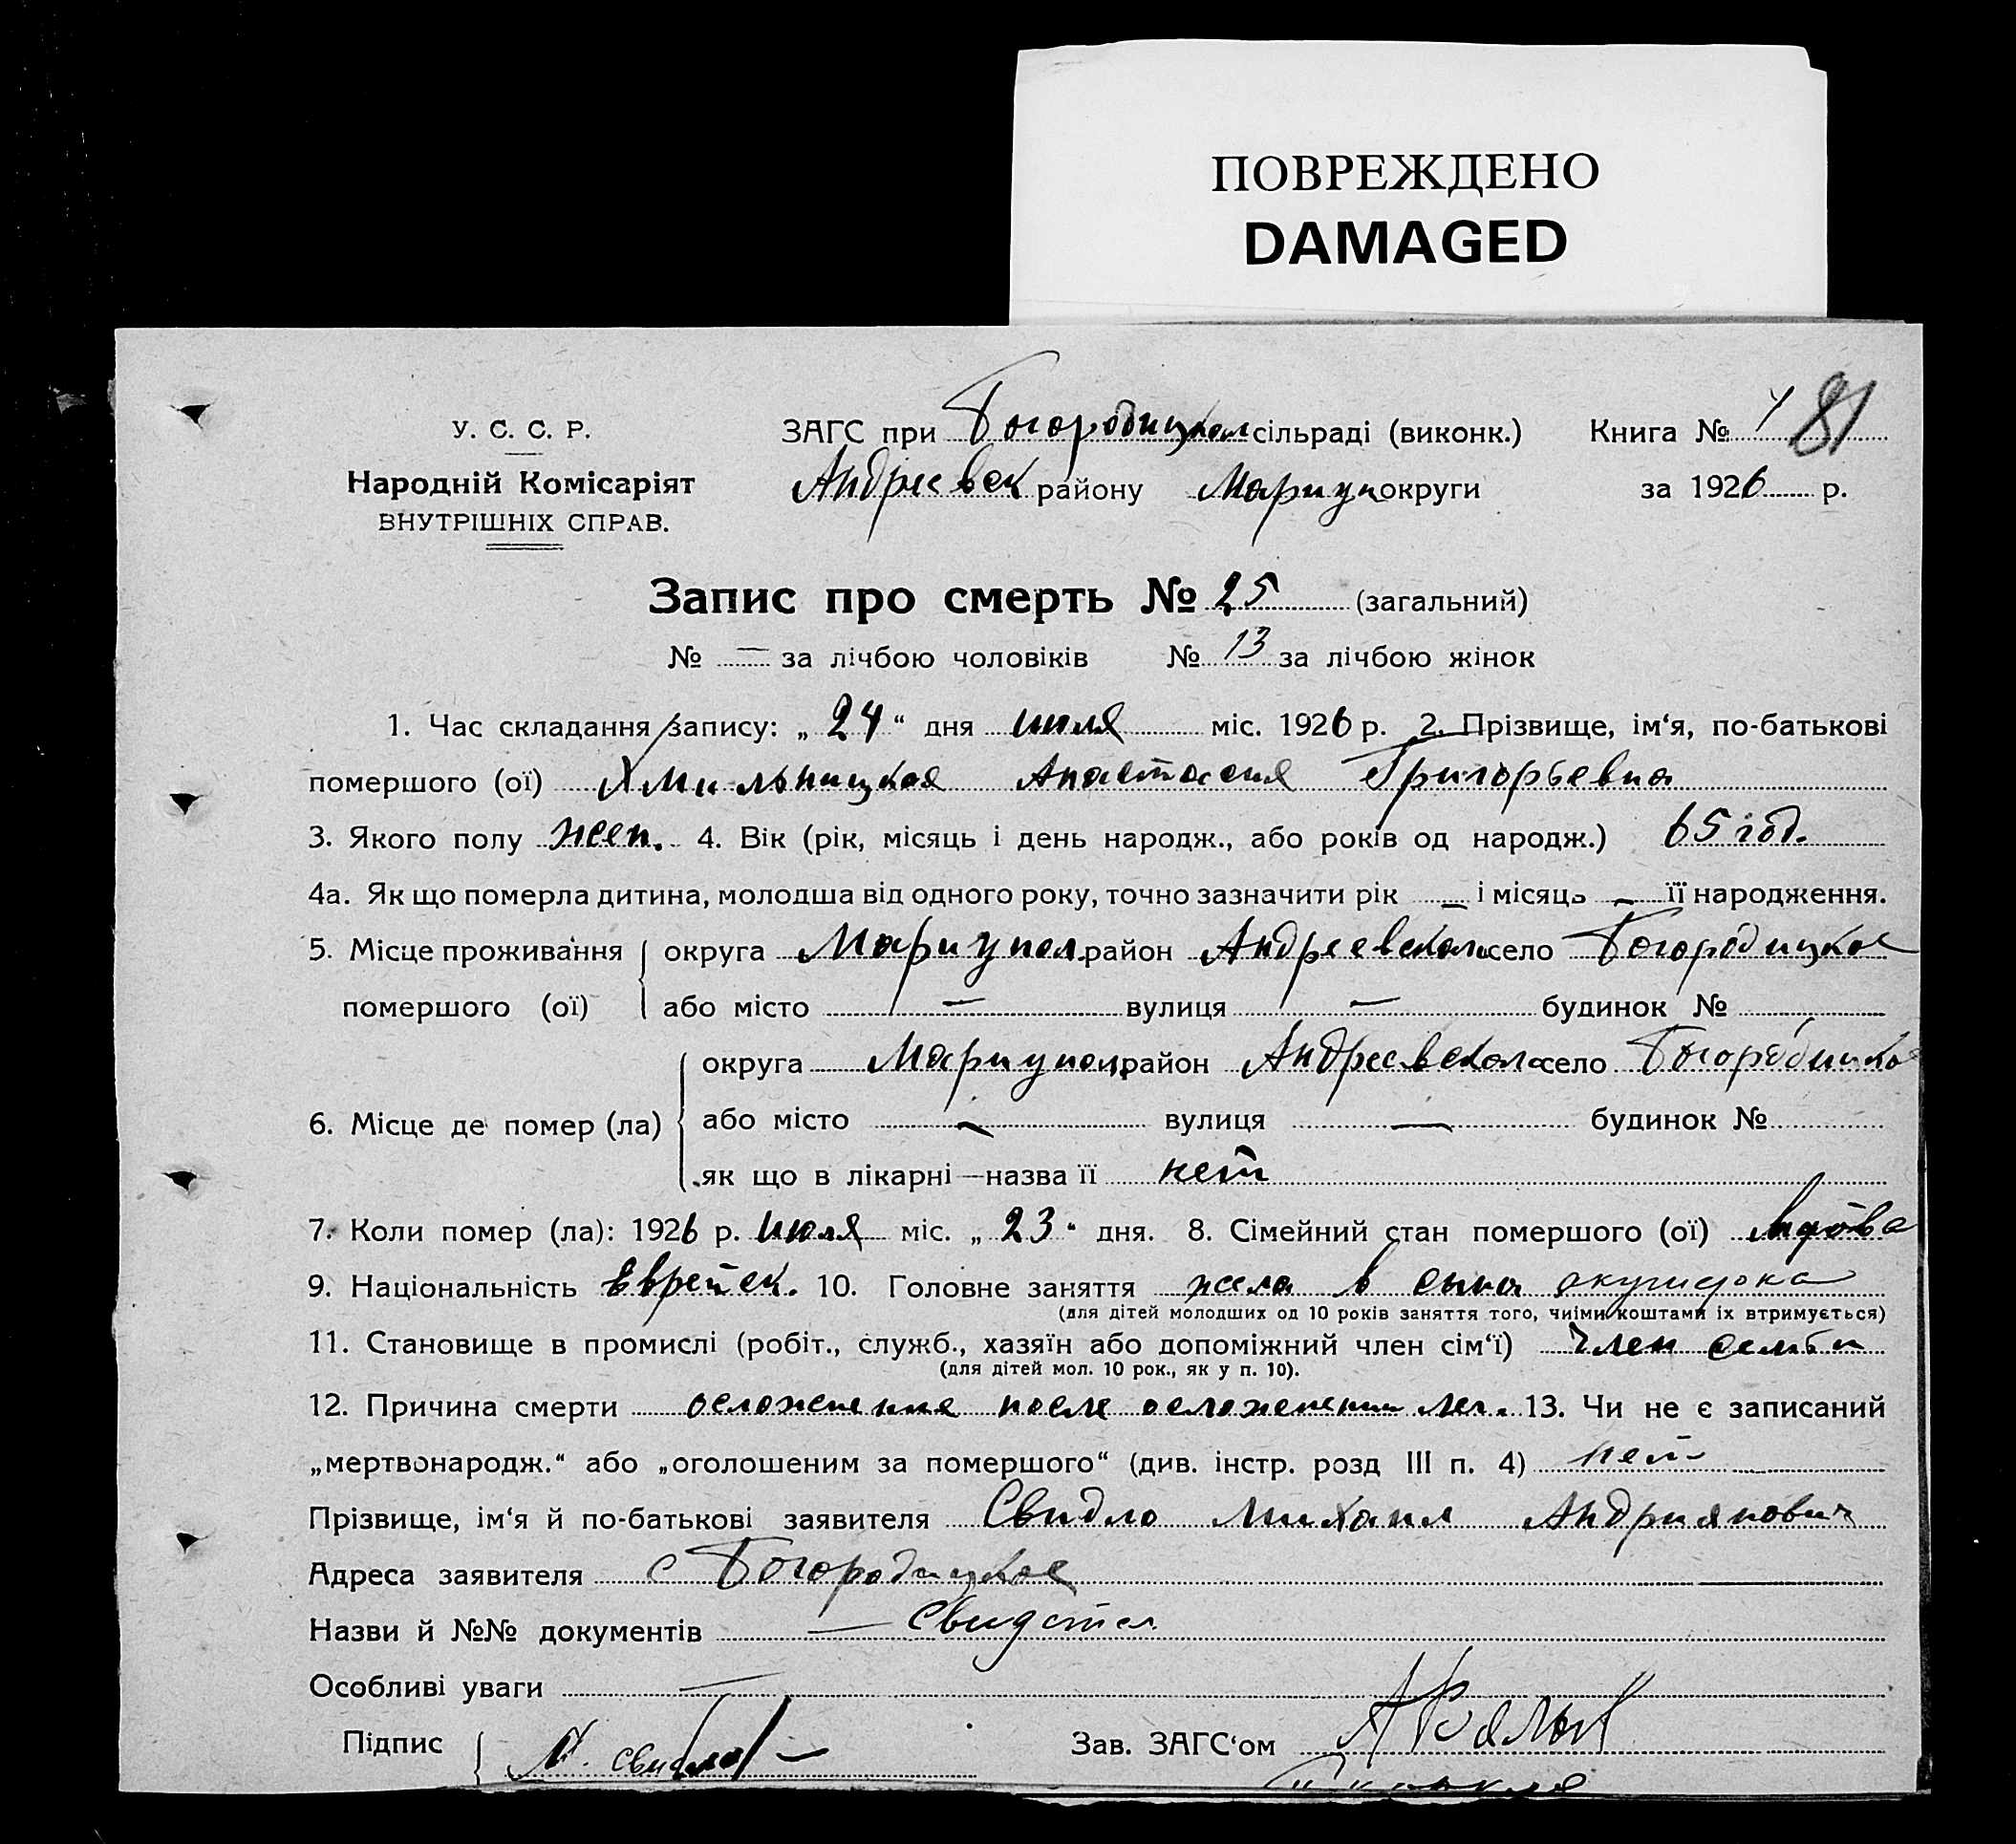 ПОВРЕЖДЕНО
DAMAGED
У. С. С. Р.
Народній Комісаріят
ВНУТРІШНІХ СПРАВ.
ЗАГС при Богородицком сільраді (виконк.) Книга № 81
Андреевск району Мариуп округи за 1926 р.
Запис про смерть № 25 (загальний)
№ — за лічбою чоловіків № 13 за лічбою жінок
1. Час складання запису: „ 24 “ дня июля міс. 1926 р. 2. Прізвище, ім‘я, по-батькові
помершого (ої) Хмильницкая Анастасия Григорьевна
3. Якого полу жен. 4. Вік (рік, місяць і день народж., або років од народж.) 65 год.
4а. Як що померла дитина, молодша від одного року, точно зазначити рік — і місяць — її народження.
5. Місце проживання помершого (ої) округа Мариупол. район Андреевского село Богородицкое
або місто — вулиця — будинок №
6. Місце де помер (ла) округа Мариупол. район Андреевского село Богородицкое
або місто — вулиця — будинок №
як що в лікарні—назва її нет
7. Коли помер (ла): 1926 р. июля міс. „ 23 “ дня. 8. Сімейний стан помершого (ої) вдова
9. Національність Еврейск. 10. Головне заняття жила в сына
(для дітей молодших од 10 років заняття того, чиїми коштами їх втримується)
11. Становище в промислі (робіт., служб., хазяїн або допоміжний член сім‘ї) Член семьи
(для дітей мол. 10 рок., як у п. 10).
12. Причина смерти осложнение после 13. Чи не є записаний
„мертвонародж.“ або „оголошеним за помершого“ (див. інстр. розд III п. 4) нет
Прізвище, ім‘я й по-батькові заявителя Свидло Михаил Андриянович
Адреса заявителя с Богородицкое
Назви й №№ документів — свидетел.
Особливі уваги —
Підпис М. Свидло — Зав. ЗАГС‘ом